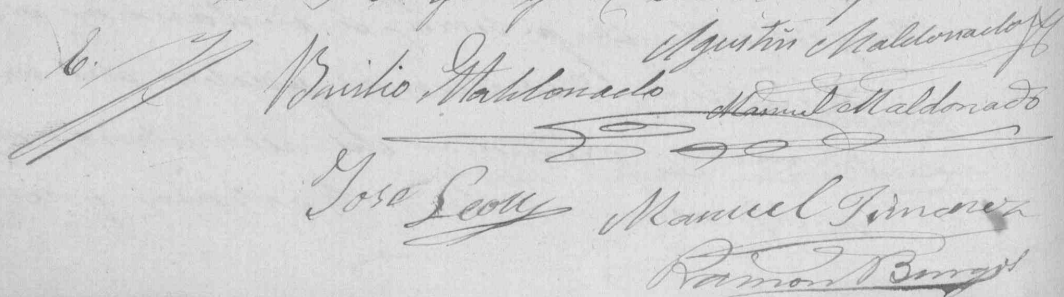 E. Agustín Maldonado
Basilio Maldonado
Manuel Maldonado
Jose Leon
Manuel Jimenez
Ramon Burgos